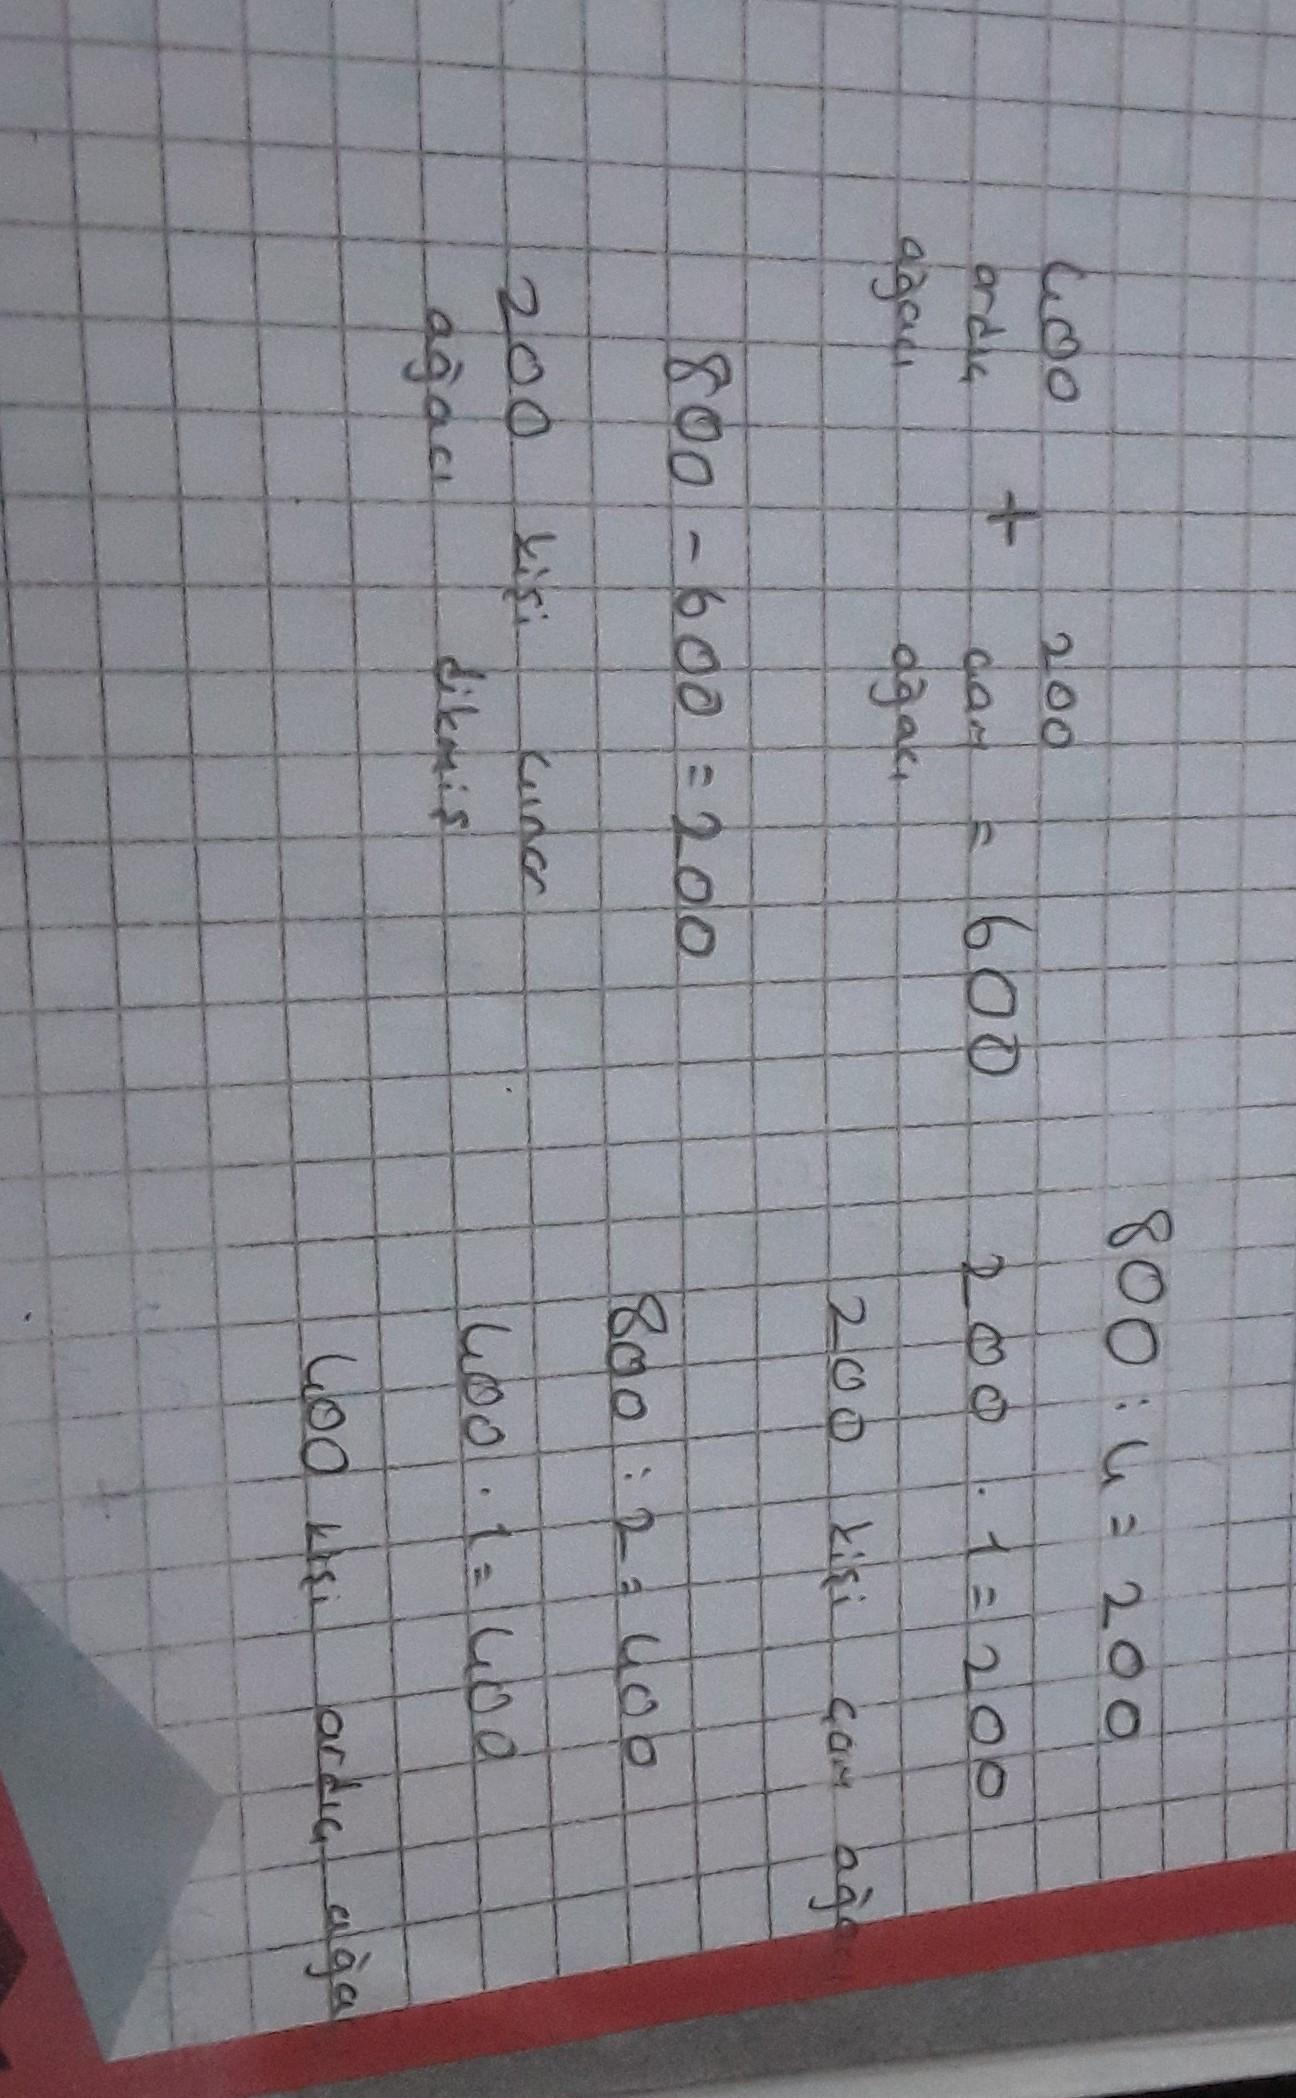 400 200
ardıç + çam = 600
ağacı ağacı
800 - 600 = 200
200 kişi çınar
ağacı dikmiş
800 : 4 = 200
200 . 1 = 200
200 kişi çam ağa
800 : 2 = 400
400 . 1 = 400
400 kişi ardıç ağa